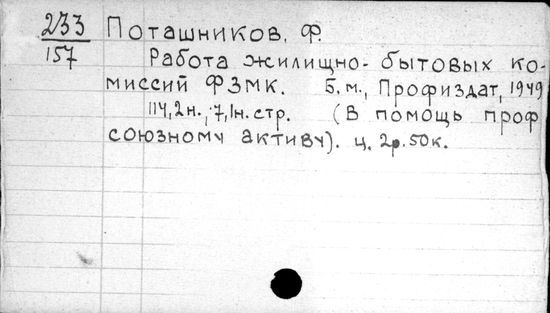 233 Поташников, Ф.
157 Работа жилищно-бытовых ко-
миссий ФЗМК. Б.м., Профиздат, 1949
114,2н.; 7,1н.стр. (В помощь проф
союзному активу). ц. 2р.50к.